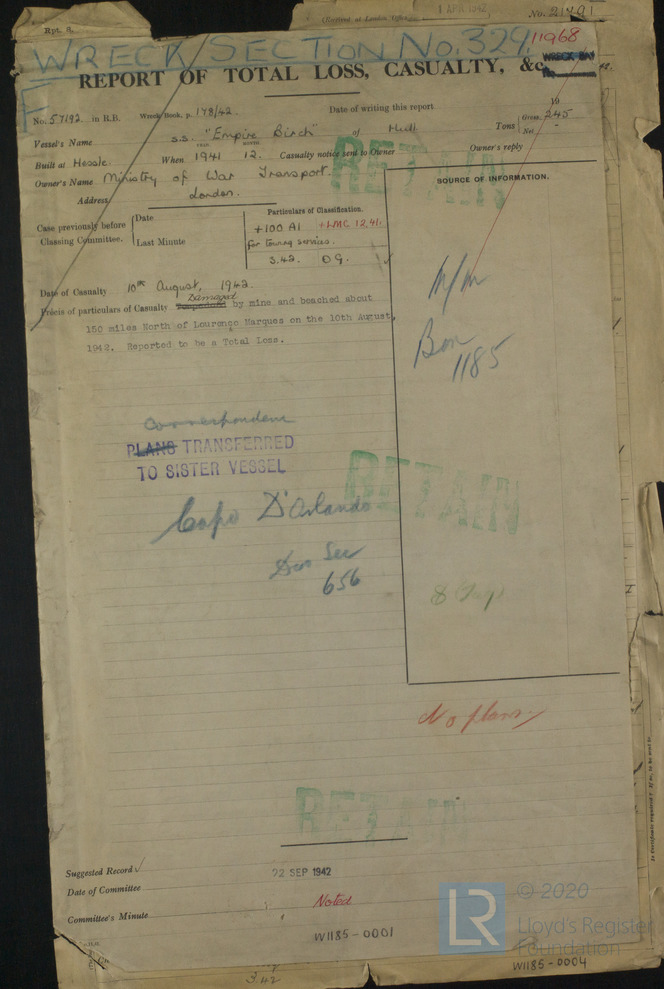 1 APR 1942
No. 21791
(Received at London Office
Rpt. 8.
WRECK SECTION No. 329.
11968
REPORT OF TOTAL LOSS, CASUALTY, &c.
No. 57192. in R.B. Wreck Book, p. 178/42. Date of writing this report 19
Vessel's Name s.s. "Empire Birch" of Hull. Tons Gross. 245
Net. -
Built at Hessle. When YEAR 1941 MONTH 12. Casualty notice sent to Owner Owner's reply
Owner's Name Ministry of War Transport.
Address London.
RETAIN
SOURCE OF INFORMATION.
Case previously before Classing Committee. Date
Last Minute
Particulars of Classification.
+100 A1 +LMC 12.41.
for towing services.
3.42. O.G.
Date of Casualty 10th August, 1942.
Précis of particulars of Casualty Damaged by mine and beached about
150 miles North of Lourenco Marques on the 10th August,
1942. Reported to be a Total Loss.
Box
1185
Correspondence
PLANS TRANSFERRED
TO SISTER VESSEL
Capo D'Orlando
See
656
RETAIN
No plans
RETAIN
Suggested Record
Date of Committee 22 SEP 1942
Committee's Minute Noted
W1185-0001
3.42
LR
© 2020
Lloyd's Register
Foundation
W1185-0004